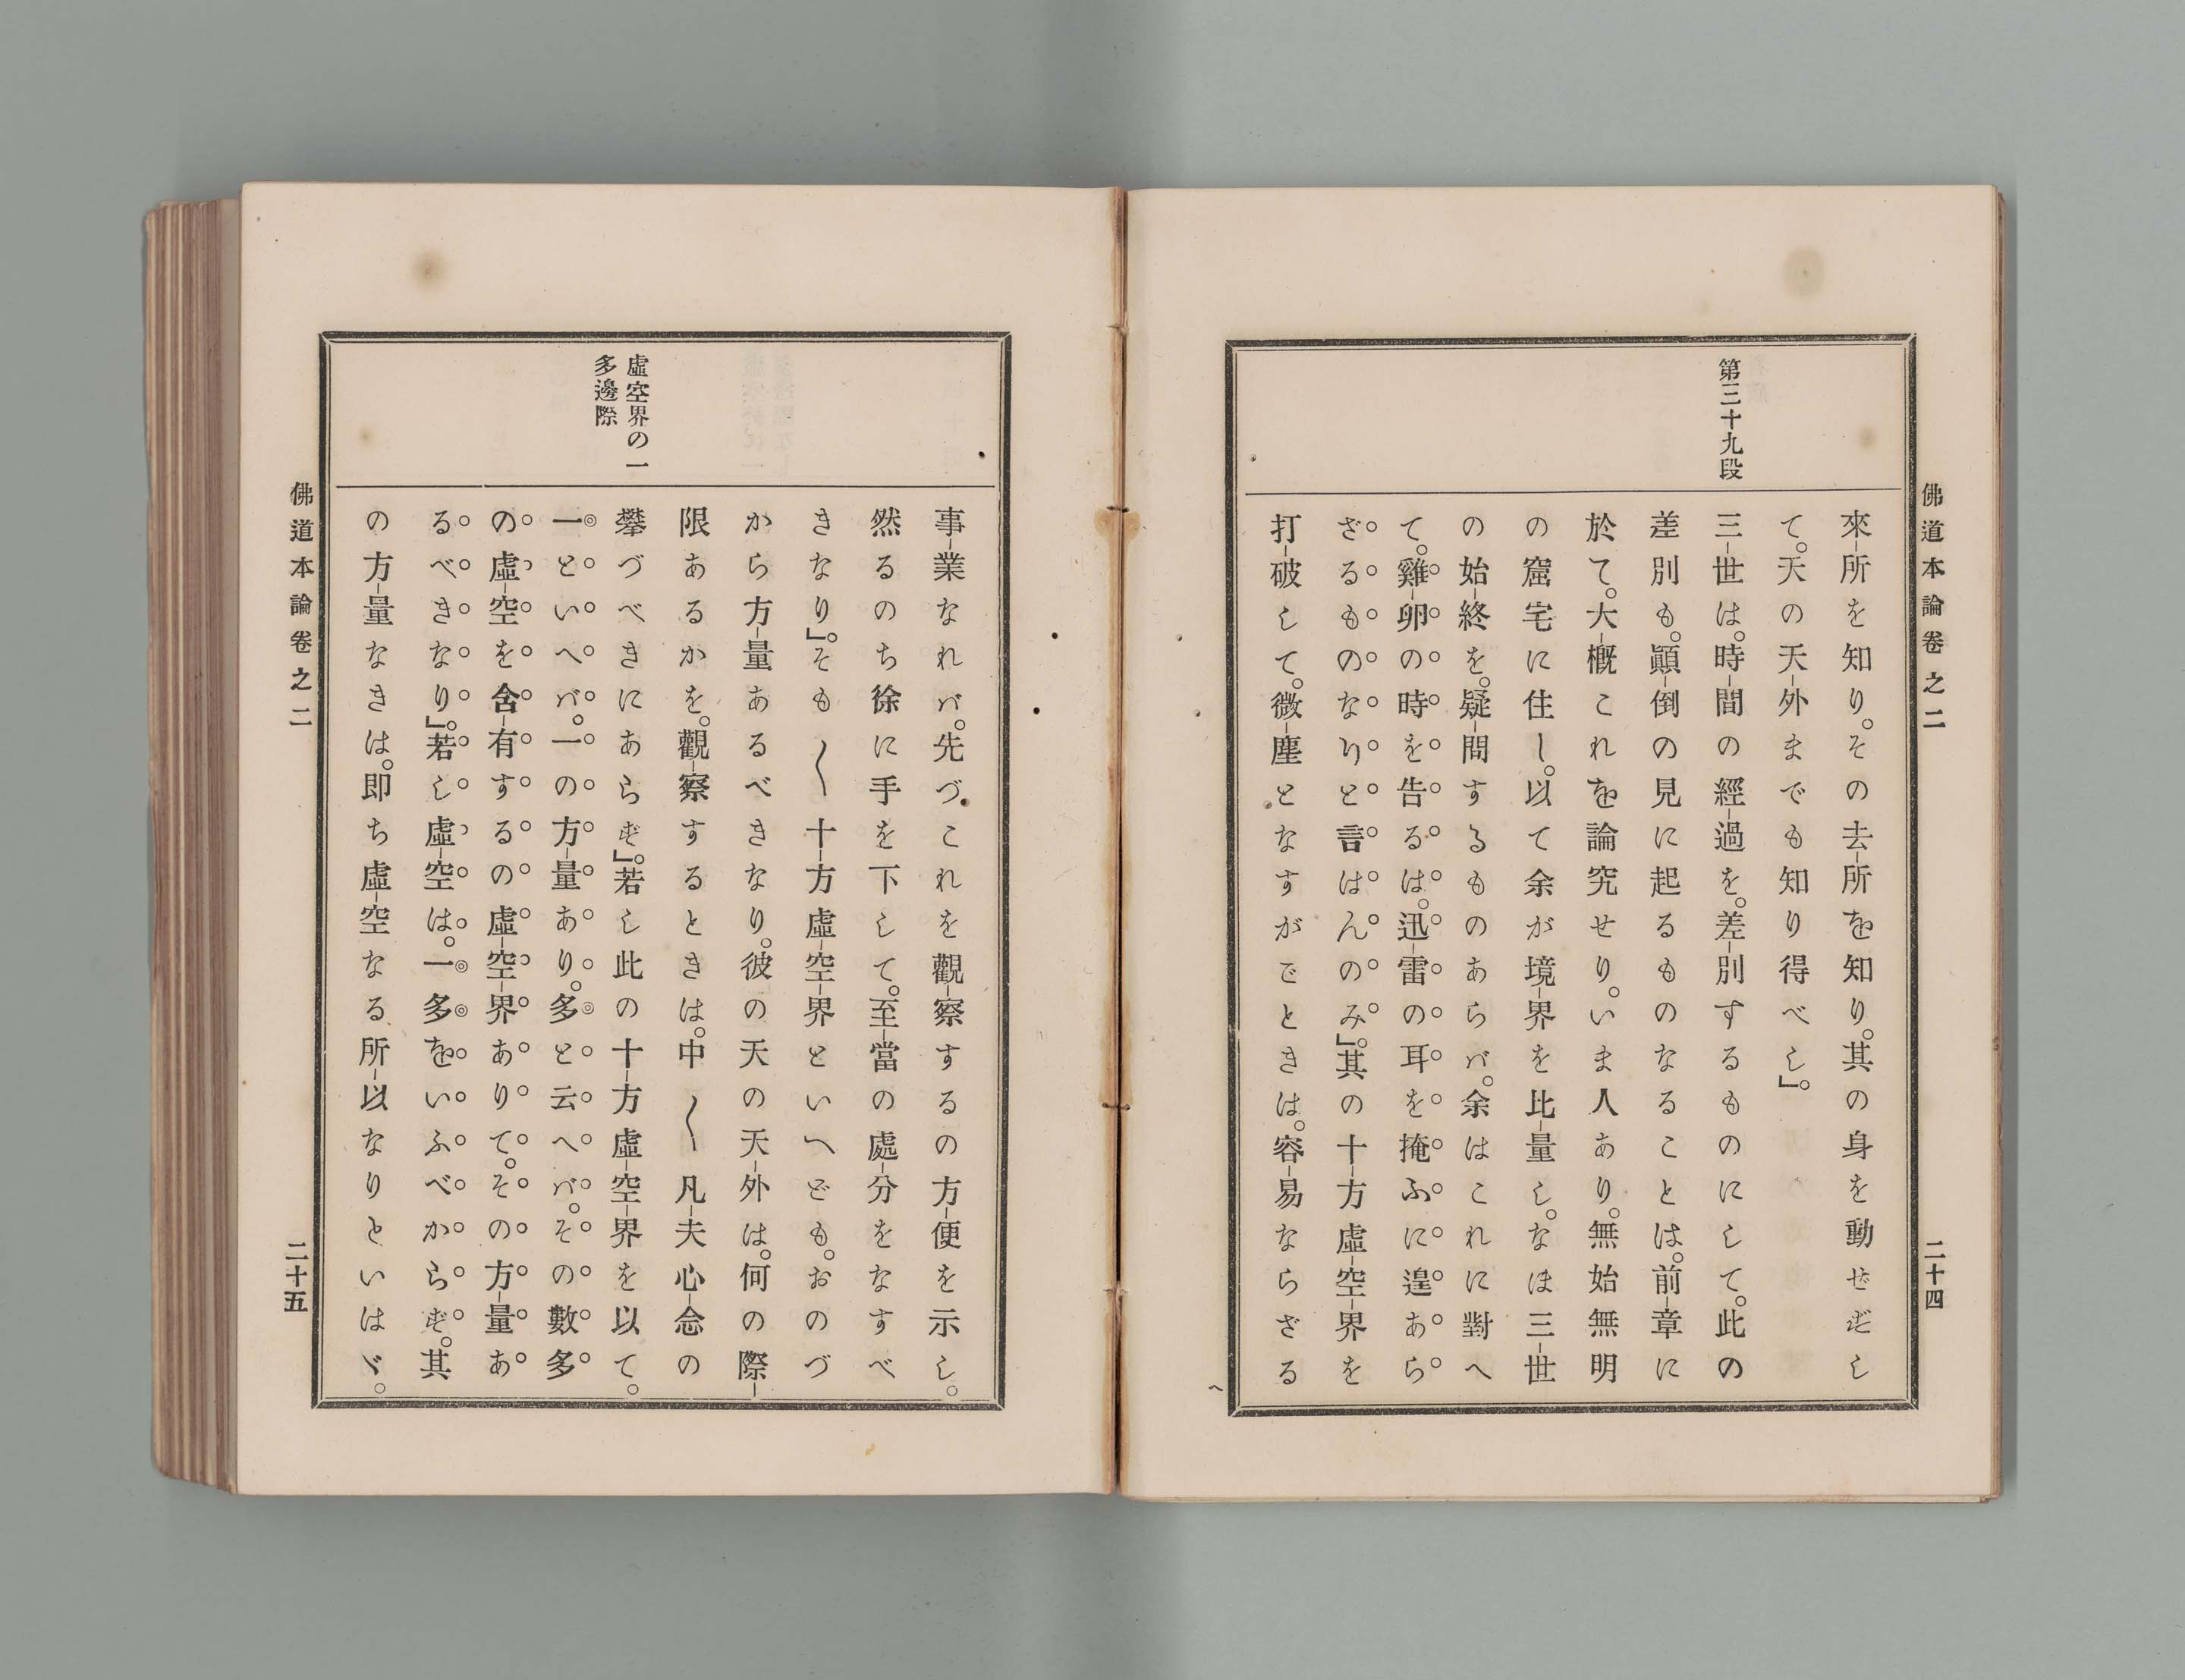 佛道本論卷之二
二十四
第三十九段
來-所を知り。その去-所を知り。其の身を動せずし
て。天の天-外までも知り得べし」。
三-世は。時-間の經-過を。差-別するものにして。此の
差別も。顚-倒の見に起るものなることは。前-章に
於て。大-槪これを論究せり。いま人あり。無始無明
の窟宅に住し。以て余が境-界を比-量し。なほ三-世
の始-終を。疑-問するものあらバ。余はこれに對へ
て。雞-卵の時を告るは。迅-雷の耳を掩ふに遑あら
ざるものなりと言はんのみ」。其の十-方虛-空-界を
打-破して。微-塵となすがごときは。容-易ならざる
虛空界の一
多邊際
事-業なれバ。先づこれを觀-察するの方-便を示し。
然るのち徐に手を下して。至-當の處-分をなすべ
きなり」。そも〳〵十-方虛-空-界といへども。おのづ
から方-量あるべきなり。彼の天の天-外は。何の際-
限あるかを。觀-察するときは。中〳〵凡-夫心-念の
攀づべきにあらず」。若し此の十-方虛-空-界を以て。
一といへバ。一の方-量あり。多と云へバ。その數多
の虛-空を含-有するの虛-空-界ありて。その方-量あ
るべきなり」。若し虛-空は。一多をいふべからず。其
の方-量なきは。即ち虛-空なる所-以なりといはゞ。
佛道本論卷之二
二十五